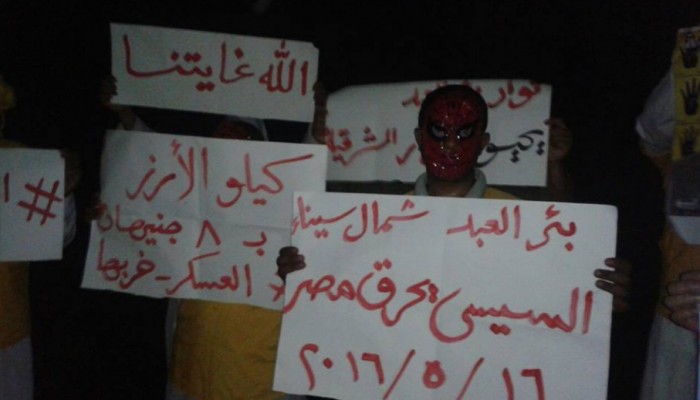 الله غايتنا
ثوار
يحيي الشرقية
#
كيلو الأرز
ب ٨ جنيهات
العسكر - خربها
بئر العبد شمال سيناء
السيسي يحرق مصر
٢٠١٦/٥/١٦